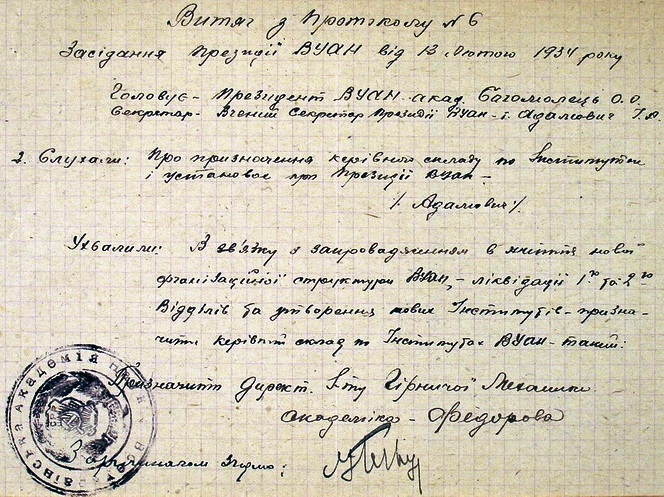 Витяг з Протоколу № 6
Засідання Президії ВУАН від 13 Лютого 1934 року
Головує - Президент ВУАН акад. Богомолець О.О.
Секретар - Вчений Секретар Президії ВУАН - т. Адамович
2. Слухали: Про призначення керівного складу по Інститутам
і установах при Президії ВУАН -
/. Адамович /.
Ухвалили: В зв'язку з запровадженням в життя нової
організаційної структури ВУАН, - ліквідації 1го та 2го
Відділів та утворення нових Інститутів - призна-
чити керівний склад по Інститутах ВУАН - такий:
Призначити Директ. І-ту Гірничої Механіки
Академіка - Федорова
З оригіналом згідно: